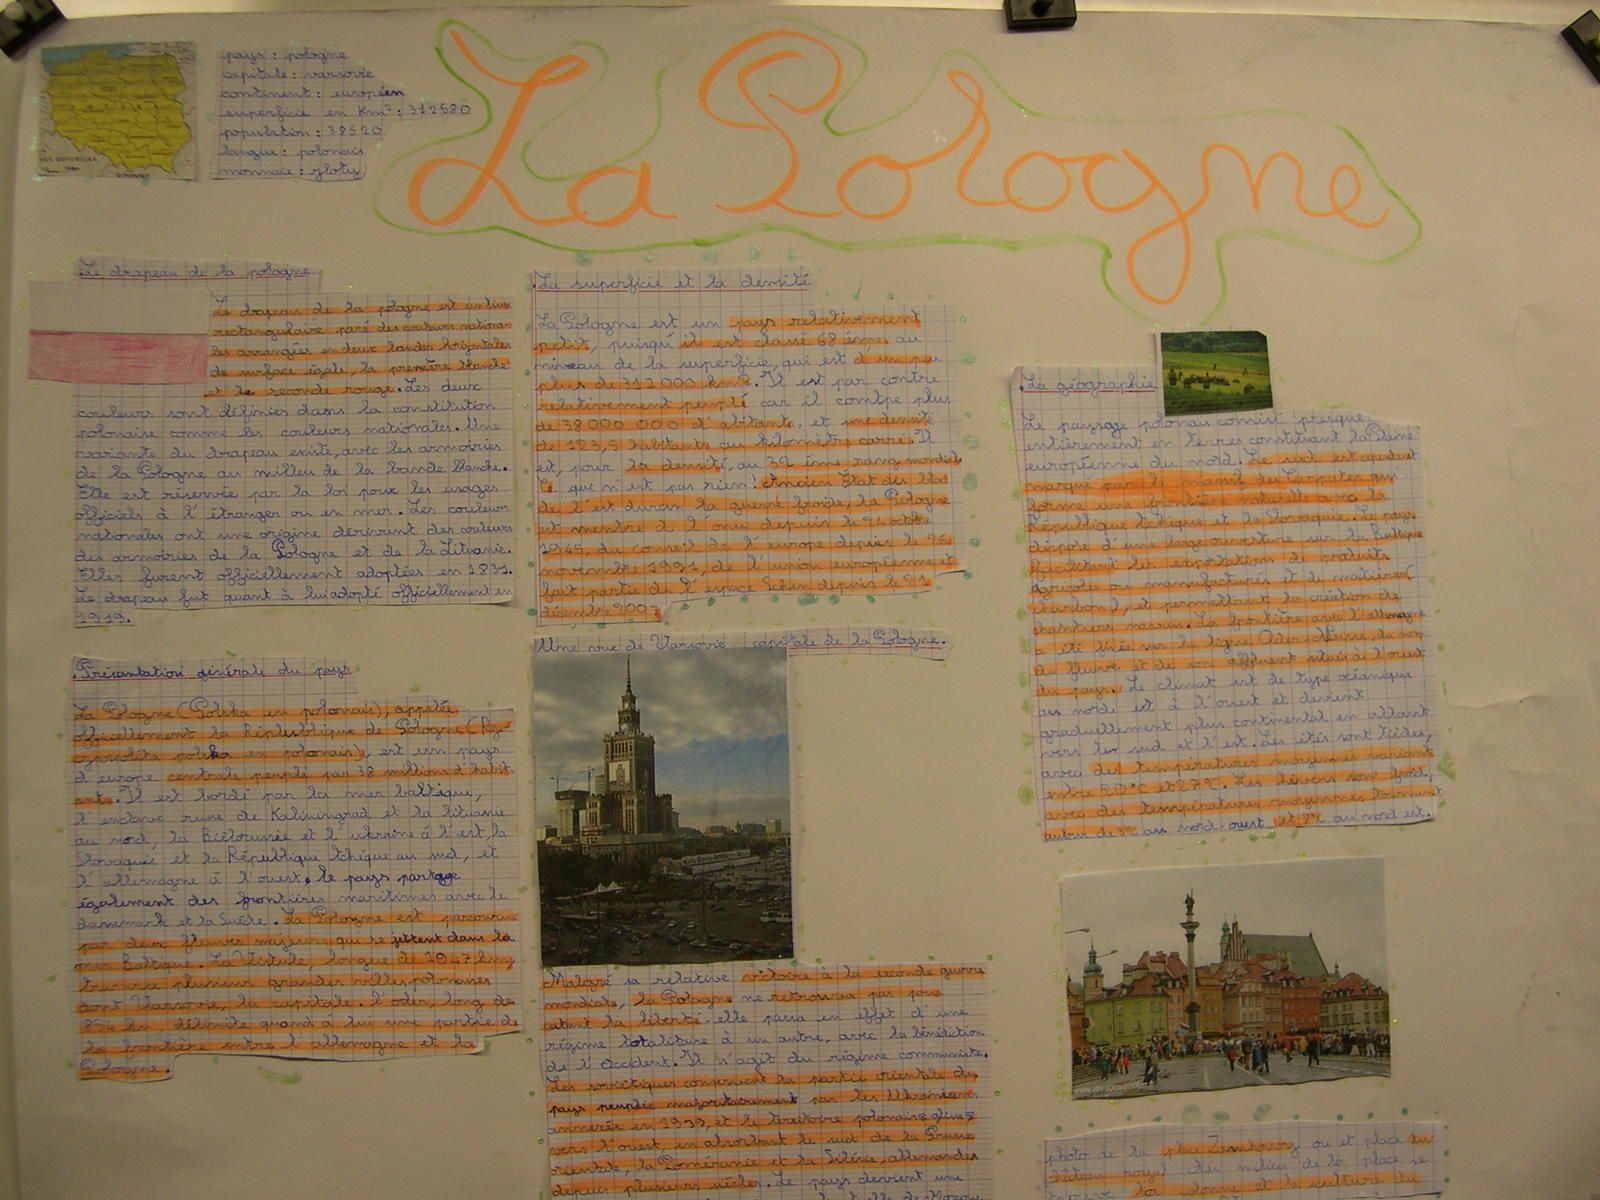 La Pologne
pays : pologne
capitale : varsovie
continent : européen
superficie en Km² : 312680
population : 38520
langue : polonais
monnaie : zloty
Le drapeau de la pologne
Le drapeau de la pologne est un tissu
rectangulaire paré des couleurs nationa-
les arrangées en deux bandes horizontales
de surface égale, la première blanche
et la seconde rouge. Les deux
couleurs sont définies dans la constitution
polonaise comme les couleurs nationales. Une
variante du drapeau existe, avec les armoiries
de la Pologne au milieu de la bande blanche.
Elle est réservée par la loi pour les usages
officiels à l'étranger ou en mer. Les couleurs
nationales ont une origine dérivant des couleurs
des armoiries de la Pologne et de la Lituanie.
Elles furent officiellement adoptées en 1831.
Le drapeau fut quant à lui adopté officiellement en
1919.
Présantation générale du pays
La Pologne (Polska en polonais), appelée
officellement la République de Pologne (Rz-
czpospolita polska en polonais), est un pays
d'europe centrale peuplé par 38 millions d'habit-
ants. Il est bordé par la mer baltique,
l'enclave russe de Kaliningrad et la lituanie
au nord, la Biélorussie et l'ukraine à l'est, la
Slovaquie et la République tchéque au sud, et
l'allemagne à l'ouest, le pays partage
également des frontières maritimes avec le
danemark et la Suède. La Pologne est parcourue
par deux fleuves majeurs qui se jettent dans la
mer Baltique. La Vistule, longue de 1047 km,
traverse plusieur grandes villes polonaises
dont Varsovie, la capitale. l'oder, long de
854 km délimite quand à lui une partie de
la frontière entre l'allemagne et la
Pologne.
La superficie et la densité
La Pologne est un pays relativement
petit, puisqu'il est classé 68 ème au
niveau de la superficie, qui est d'un peu
plus de 312000 km². Il est par contre
relativement peuplé car il comtpe plus
de 38000 000 d'abitants, et une densité
de 123,5 habitants au kilomètre carré. Il
est, pour la densité, au 32 ème rang mondial.
Ce qui n'est pas rien! Ancien État des bloc
de l'est durant la guerre froide, la Pologne
est membre de l'onu depuis le 24 octobre
1945, du conseil de l'europe depuis le 26
novembre 1991, de l'union européenne et
fait partie de l'espace Schen depuis le 21
décembre 2007
Une rue de Varsovie, capitale de la Pologne.
Malgré sa relative victoire à la seconde guerre
mondiale, la Pologne ne retrouva pas pour
autant la liberté. elle passa en effet d'une
régime totalitaire à un autre, avec la bénédiction
de l'Occident. Il s'agit du régime communiste.
Les soviétiques conservent la partie orientale du
pays peuplée majoritairement par les Ukrainiens
annexée en 1939, et le territoire polonais glisse
vers l'ouest, en absorbant le sud de la Prusse
orientale, la Poméranie et la Silésie, allemandes
depuis plusieurs siècles. Le pays devient une
de Moscou
La géographie
Le paysage polonais consist presque
entièrement en terres constituant la Plaine
européenne du nord. Le sud est cependant
marqué par le massif des Carpates qui
forme une frontière naturelle avec la
République tchèque et la Slovaquie. Le pays
dispose d'une large ouverture sur la Baltique
facilitant les exportations de produits
agricoles ou manufacturés et de matières(
charbon), et permettant la création de
chantiers navals. La frontière avec l'allemagne
a été fixée sur la ligne Oder-Neisse, du nom
du fleuve et de son affluent situés à l'ouest
du pays. Le climat est de type océanique
au nord et à l'ouest et devient
graduellement plus continental en allant
vers le sud et l'est. Les étés sont tièdes,
avec des températures moyennes variant
entre 20°C et 27°C. Les hivers sont froid,
avec des températures moyennes tournant
autour de 3°C au nord-ouest et 8°C au nord est.
photo de la place Zamkowy ou et place du
château royal. Au milieu de la place se
trouve la colonne et la sculture du